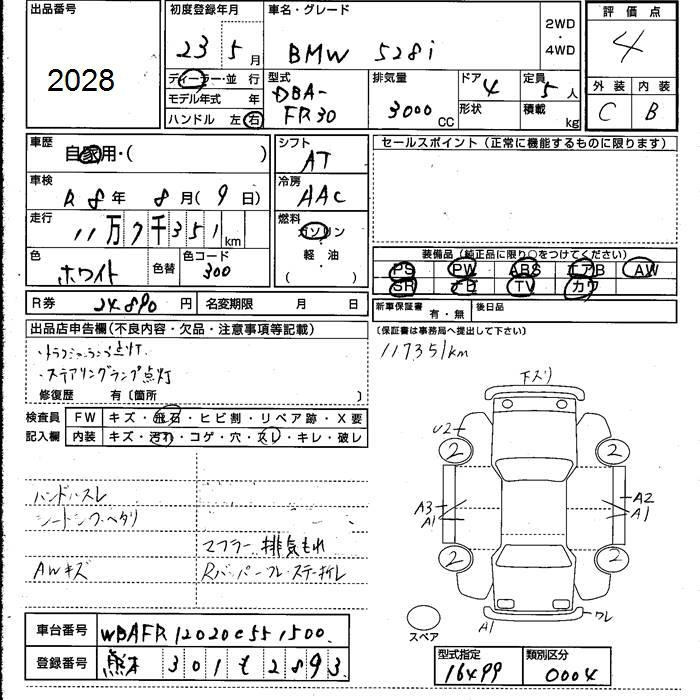 出品番号
2028
初度登録年月
23 5月
ディーラー・並行
モデル年式 年
ハンドル 左 右
車名・グレード
BMW 528i
2WD
・
4WD
型式
DBA-
FR30
排気量
3000
CC
ドア
4
形状
定員
5人
積載
kg
評価点
4
外装 内装
C B
車歴
自家用・( )
車検
R8年 8月(9日)
走行
11万7千351km
色
ホワイト
色替
色コード
300
R券 24.890円 名変期限 月 日
シフト
AT
冷房
AAC
燃料
ガソリン
・
軽・油
( )
セールスポイント (正常に機能するものに限ります)
装備品(純正品に限り○をつけてください)
PS PW ABS エアB AW
SR ナビ TV カワ
新車保証書 有・無 後日品
(保証書は事務局へ提出して下さい)
117351km
出品店申告欄(不良内容・欠品・注意事項等記載)
ステアリングランプ点灯
修復歴 有〔箇所 〕
検査員
記入欄
FW キズ・飛石・ヒビ割・リペア跡・X要
内装 キズ・汚れ・コゲ・穴・スレ・キレ・破レ
ハンドルスレ
シートシワ・ヘタリ
マフラー排気もれ
AWキズ
下スリ
U2
2 2
A3 A2
A1 A1
2 2
A1 ワレ
スペア
車台番号 WBAFR12020C551500
登録番号 熊本 301 も 2893
型式指定 類別区分
16499 0004